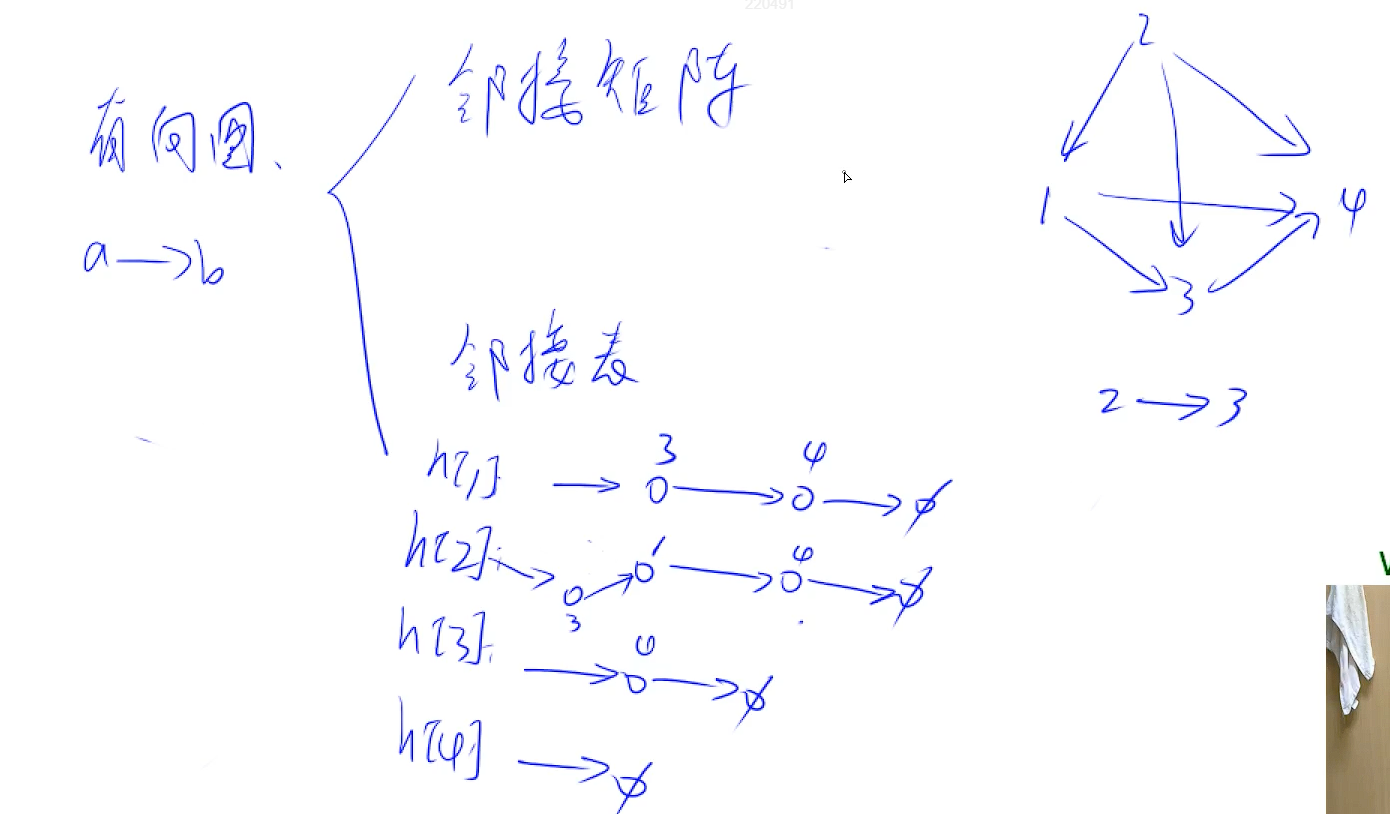 220491
有向图、
a→b
邻接矩阵
邻接表
h[1] → 3 → 4 → ∅
h[2] → 3 → 1 → 4 → ∅
h[3] → 4 → ∅
h[4] → ∅
2
1
4
3
2→3